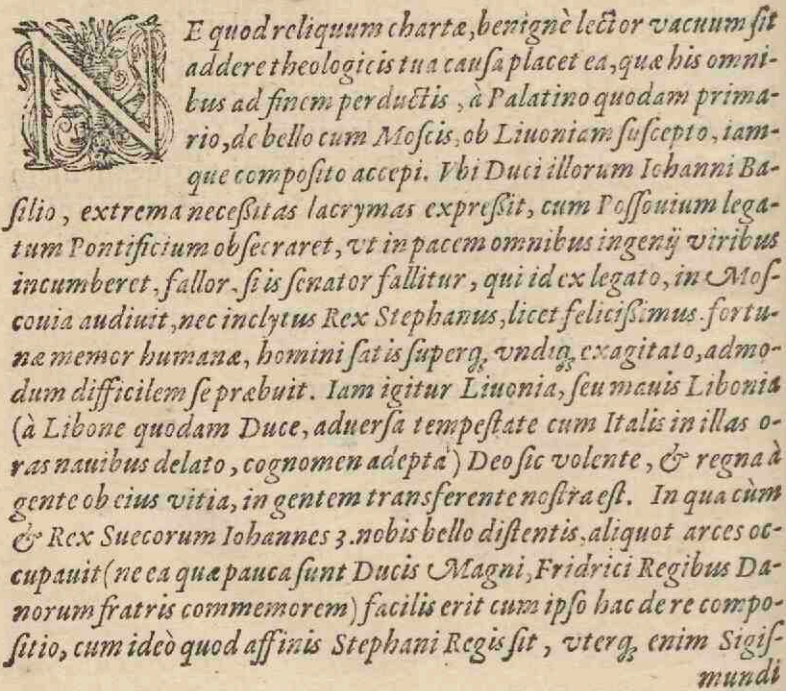 NE quod reliquum chartæ, benignè lector vacuum ſit
addere theologicis tua cauſa placet ea, quæ his omni-
bus ad finem perductis, à Palatino quodam prima-
rio, de bello cum Moſcis, ob Liuoniam ſuſcepto, iam-
que compoſito accepi. Vbi Duci illorum Iohanni Ba-
ſilio, extrema neceßitas lacrymas expreßit, cum Poſſouium lega-
tum Pontificium obſecraret, vt in pacem omnibus ingenij viribus
incumberet, fallor, ſi is ſenator fallitur, qui id ex legato, in Moſ-
couia audiuit, nec inclytus Rex Stephanus, licet feliciſſimus. fortu-
næ memor humanæ, homini ſatis ſuperq́; vndiq́; exagitato, admo-
dum difficilem ſe præbuit. Iam igitur Liuonia, ſeu mauis Libonia
(à Libone quodam Duce, aduerſa tempeſtate cum Italis in illas o-
ras nauibus delato, cognomen adepta) Deo ſic volente, & regna à
gente ob eius vitia, in gentem transferente noſtra eſt. In qua cùm
& Rex Suecorum Iohannes 3. nobis bello diſtentis, aliquot arces oc-
cupauit (ne ea quæ pauca ſunt Ducis Magni, Fridrici Regibus Da-
norum fratris commemorem) facilis erit cum ipſo hac de re compo-
ſitio, cum ideò quod affinis Stephani Regis ſit, vterq́; enim Sigiſ-
mundi